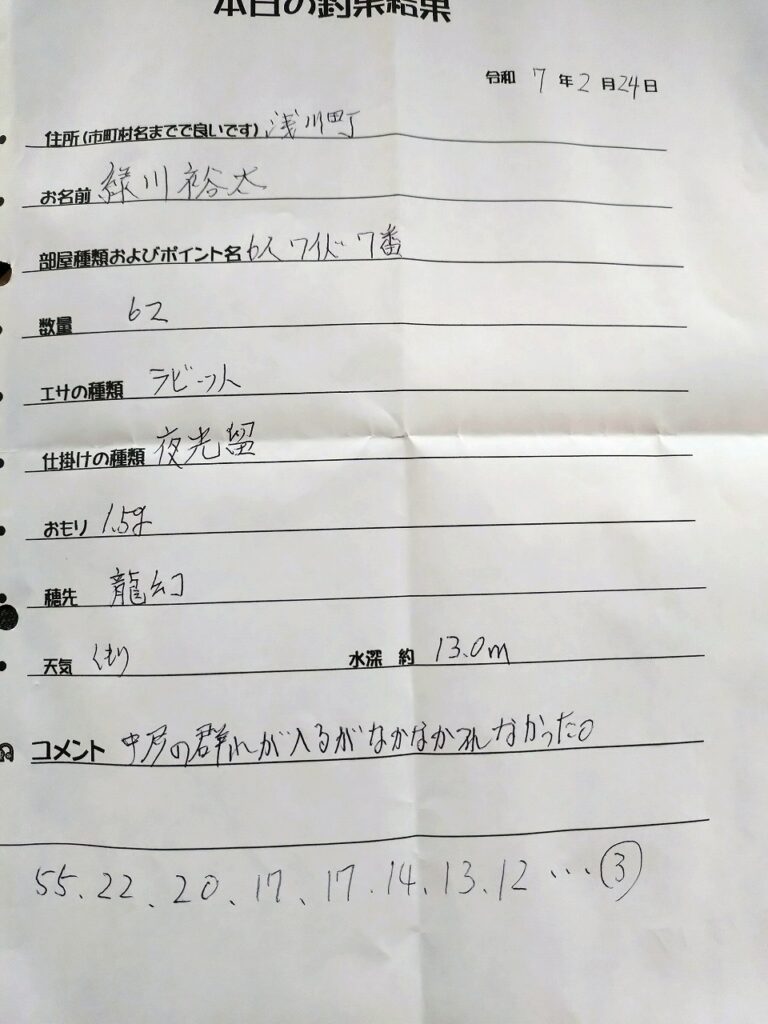 本日の釣果結果
令和 7 年 2 月 24 日
住所(市町村名までで良いです) 浅川町
お名前 緑川裕太
部屋種類およびポイント名 6人ワイド 7番
数量 62
エサの種類 ラビット
仕掛けの種類 夜光留
おもり 1.5g
穂先 龍幻
天気 くもり 水深 約 13.0m
コメント 中層の群れが入るがなかなかつれなかった。
55.22、20、17、17.14.13.12…③